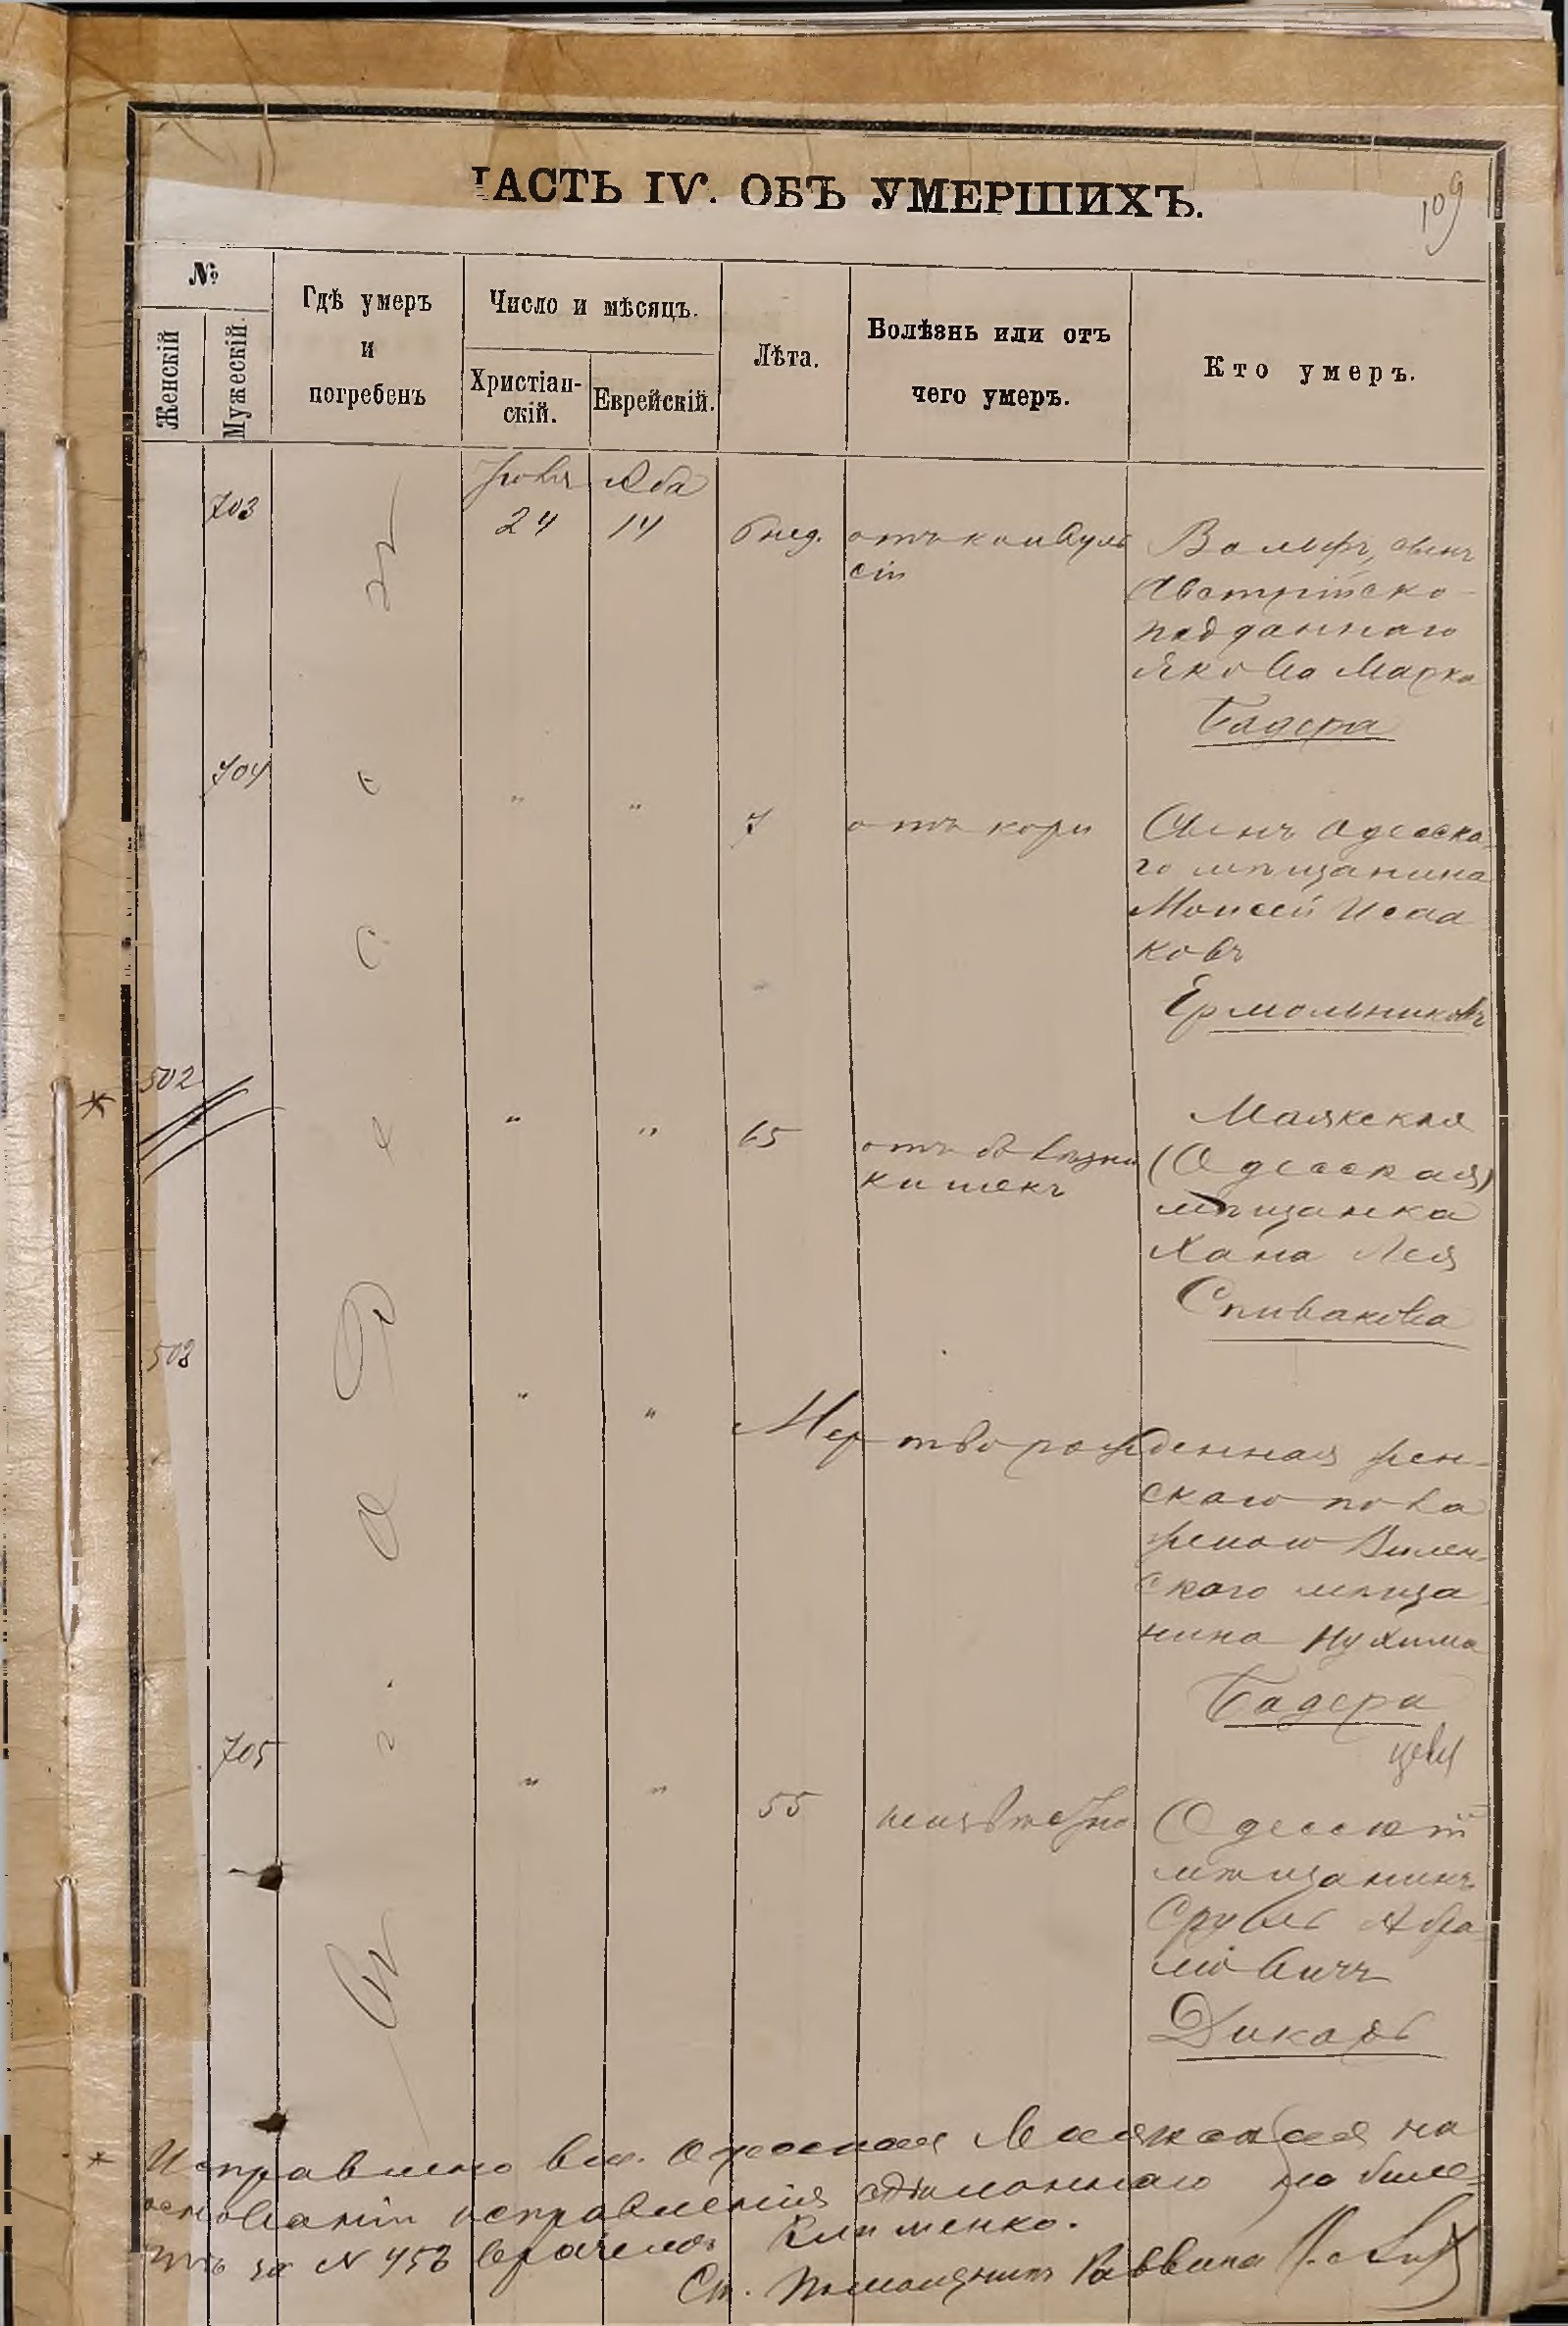 ЧАСТЬ IV. ОБЪ УМЕРШИХЪ.
109
№
Женскій
Мужескій.
Гдѣ умеръ
и
погребенъ
Число и мѣсяцъ.
Христіан-
скій.
Еврейскій.
Лѣта.
Болѣзнь или отъ
чего умеръ.
Кто умеръ.
Іюля Аба
703
24 14 6 нед. отъ конвуль
сіи
Вольфъ, сынъ
Австрійско-
подданнаго
Якова Марка
Бадера
704
" " 7 отъ кори
Сынъ Одесска-
го мѣщанина
Моисей Исаа
ковъ
Ермольниковъ
* 502
" " 65 отъ болѣзни
кишекъ
Маякская
(Одесская)
мѣщанка
Хана Лея
Спивакова
503
" " Мертворожденная жен-
скаго пола
Вилен-
скаго мѣща
нина Нухима
Бадера
705
" " 55 неизвѣстно
Одесскій
мѣщанинъ
Сруль Абра
мовичъ
Дикарь
Въ г. Одессѣ
* Исправлено вм. Одесская Маякская на
основаніи исправленія сдѣланнаго на биле-
тѣ за N 453 врачемъ Клименко.
Ст. Помощникъ Раввина